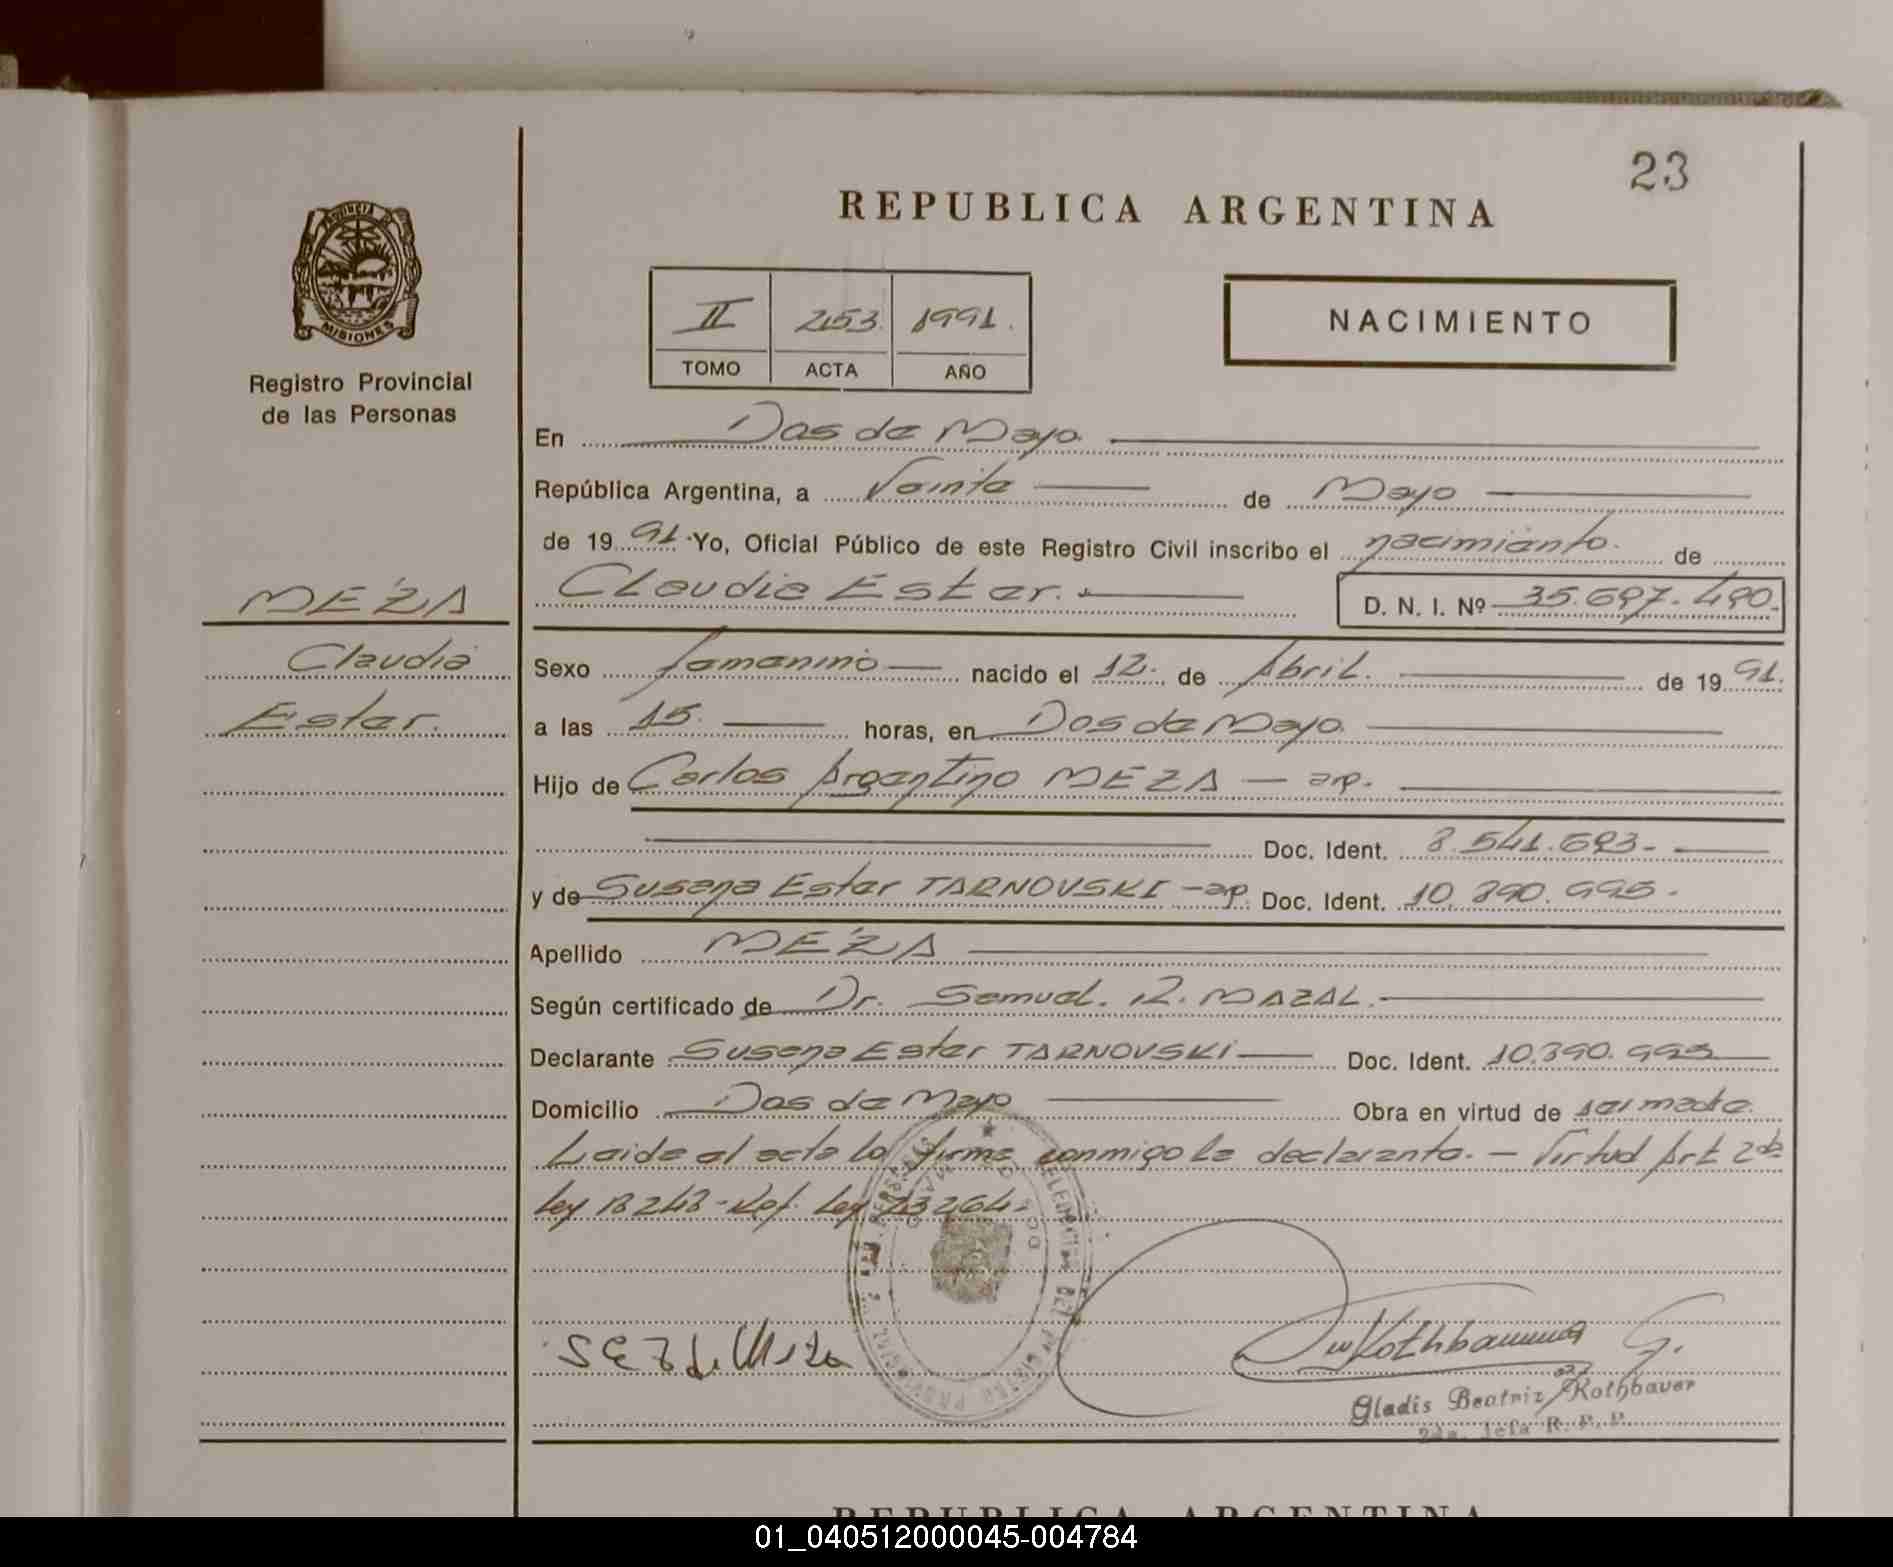 23
REPUBLICA ARGENTINA
PROVINCIA
MISIONES
Registro Provincial
de las Personas
II 253. 1991.
TOMO ACTA AÑO
NACIMIENTO
En Dos de Mayo.
República Argentina, a Veinte de Mayo
de 19 91. Yo, Oficial Público de este Registro Civil inscribo el nacimiento. de
MEZA
Claudia Ester. D. N. I. Nº 35.697.490.
Claudia
Sexo femenino nacido el 12. de Abril. de 19 91.
Ester.
a las 15. horas, en Dos de Mayo.
Hijo de Carlos Argentino MEZA — arg.
Doc. Ident. 8.541.693-
y de Susana Ester TARNOVSKI - arg. Doc. Ident. 10.390.995.
Apellido MEZA
Según certificado de Dr. Samuel. R. MAZAL.
Declarante Susana Ester TARNOVSKI Doc. Ident. 10.390.995
Domicilio Dos de Mayo Obra en virtud de ser madre.
Leida el acta la firma conmigo la declarante. - Virtud Art 2do
Ley 18248 - Ref. Ley 23264.
DOS DE MAYO
S E T de Meza
Rothbauer G.
Gladis Beatriz Rothbauer
2da. Jefa R. P. P.
REPUBLICA ARGENTINA
01_040512000045-004784